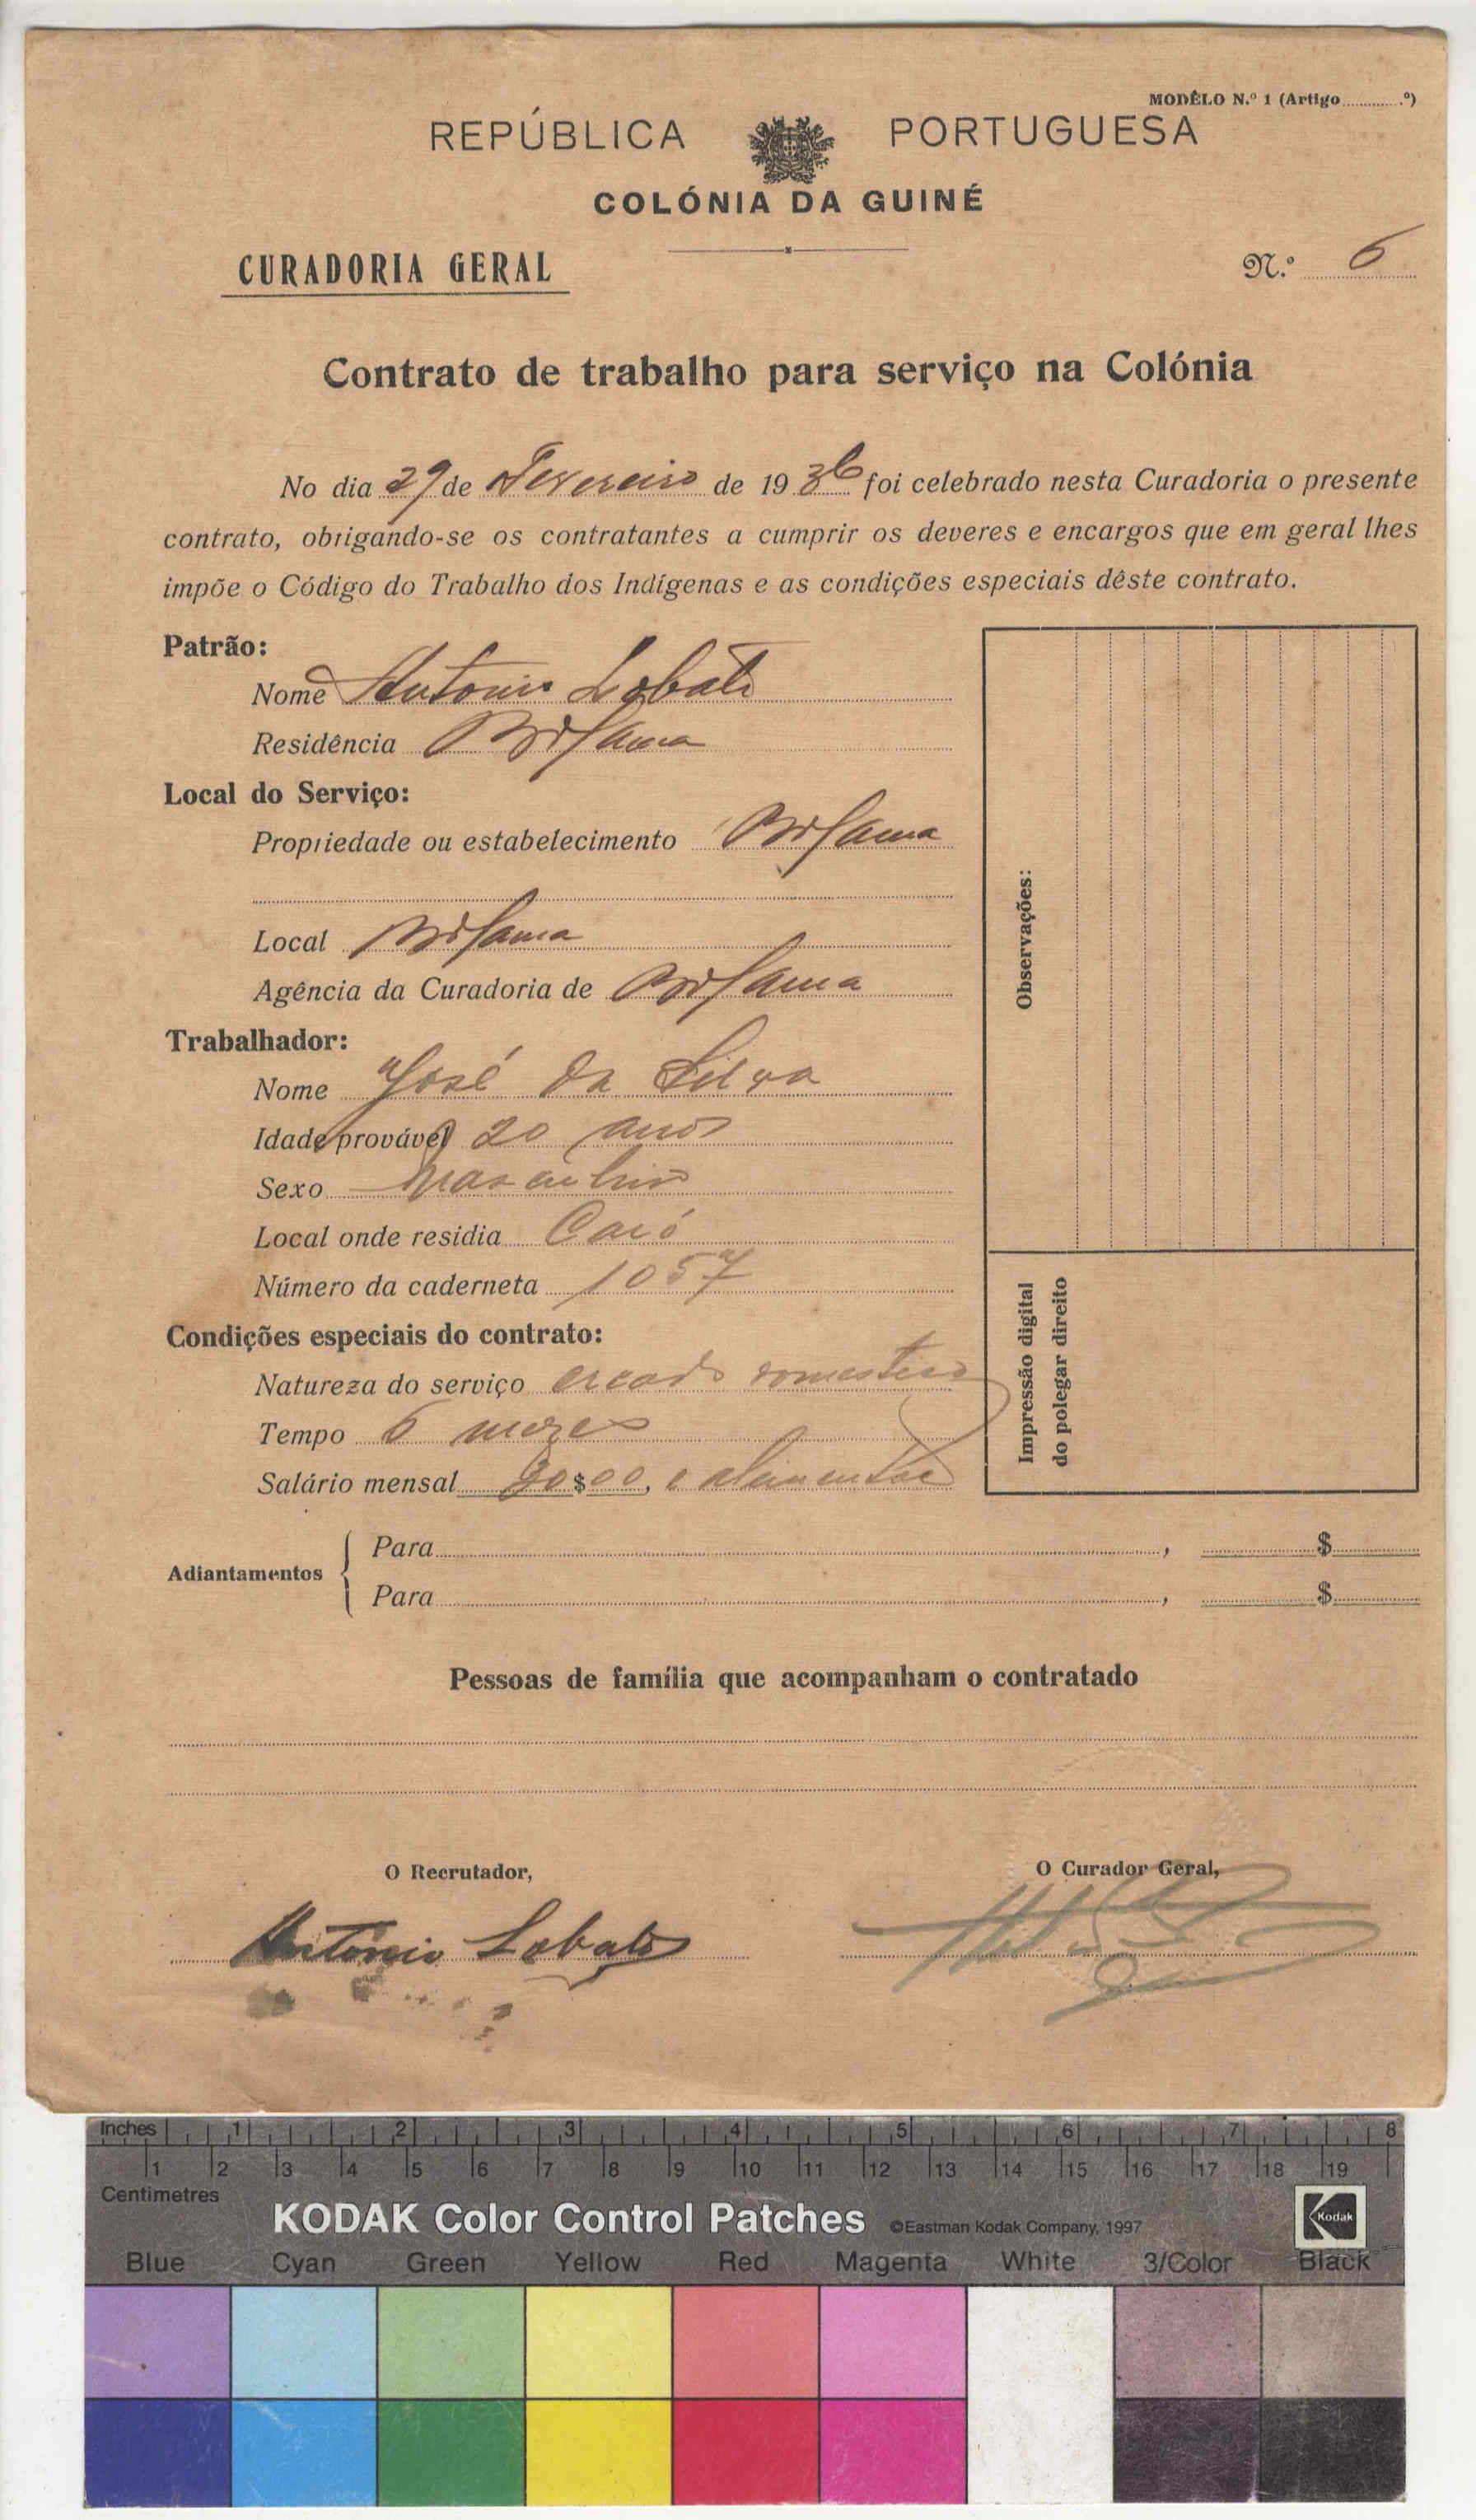 MODÊLO N.º 1 (Artigo .............º)
REPÚBLICA PORTUGUESA
COLÓNIA DA GUINÉ
CURADORIA GERAL
N.º 6
Contrato de trabalho para serviço na Colónia
No dia 29 de Fevereiro de 1936 foi celebrado nesta Curadoria o presente
contrato, obrigando-se os contratantes a cumprir os deveres e encargos que em geral lhes
impõe o Código do Trabalho dos Indígenas e as condições especiais dêste contrato.
Patrão:
Nome Antonio Lobato
Residência Bissau
Local do Serviço:
Propriedade ou estabelecimento
Local
Agência da Curadoria de
Trabalhador:
Nome José da Silva
Idade (provável) 20 anos
Sexo Masculino
Local onde residia Caió
Número da caderneta 1057
Condições especiais do contrato:
Natureza do serviço creado domestico
Tempo 6 mezes
Salário mensal 30$00, e alimentação
Observações:
Impressão digital
do polegar direito
Adiantamentos
Para , $
Para , $
Pessoas de família que acompanham o contratado
O Recrutador,
O Curador Geral,
António Lobato
Inches 1 2 3 4 5 6 7 8
1 2 3 4 5 6 7 8 9 10 11 12 13 14 15 16 17 18 19
Centimetres
KODAK Color Control Patches ©Eastman Kodak Company, 1997 Kodak
Blue Cyan Green Yellow Red Magenta White 3/Color Black